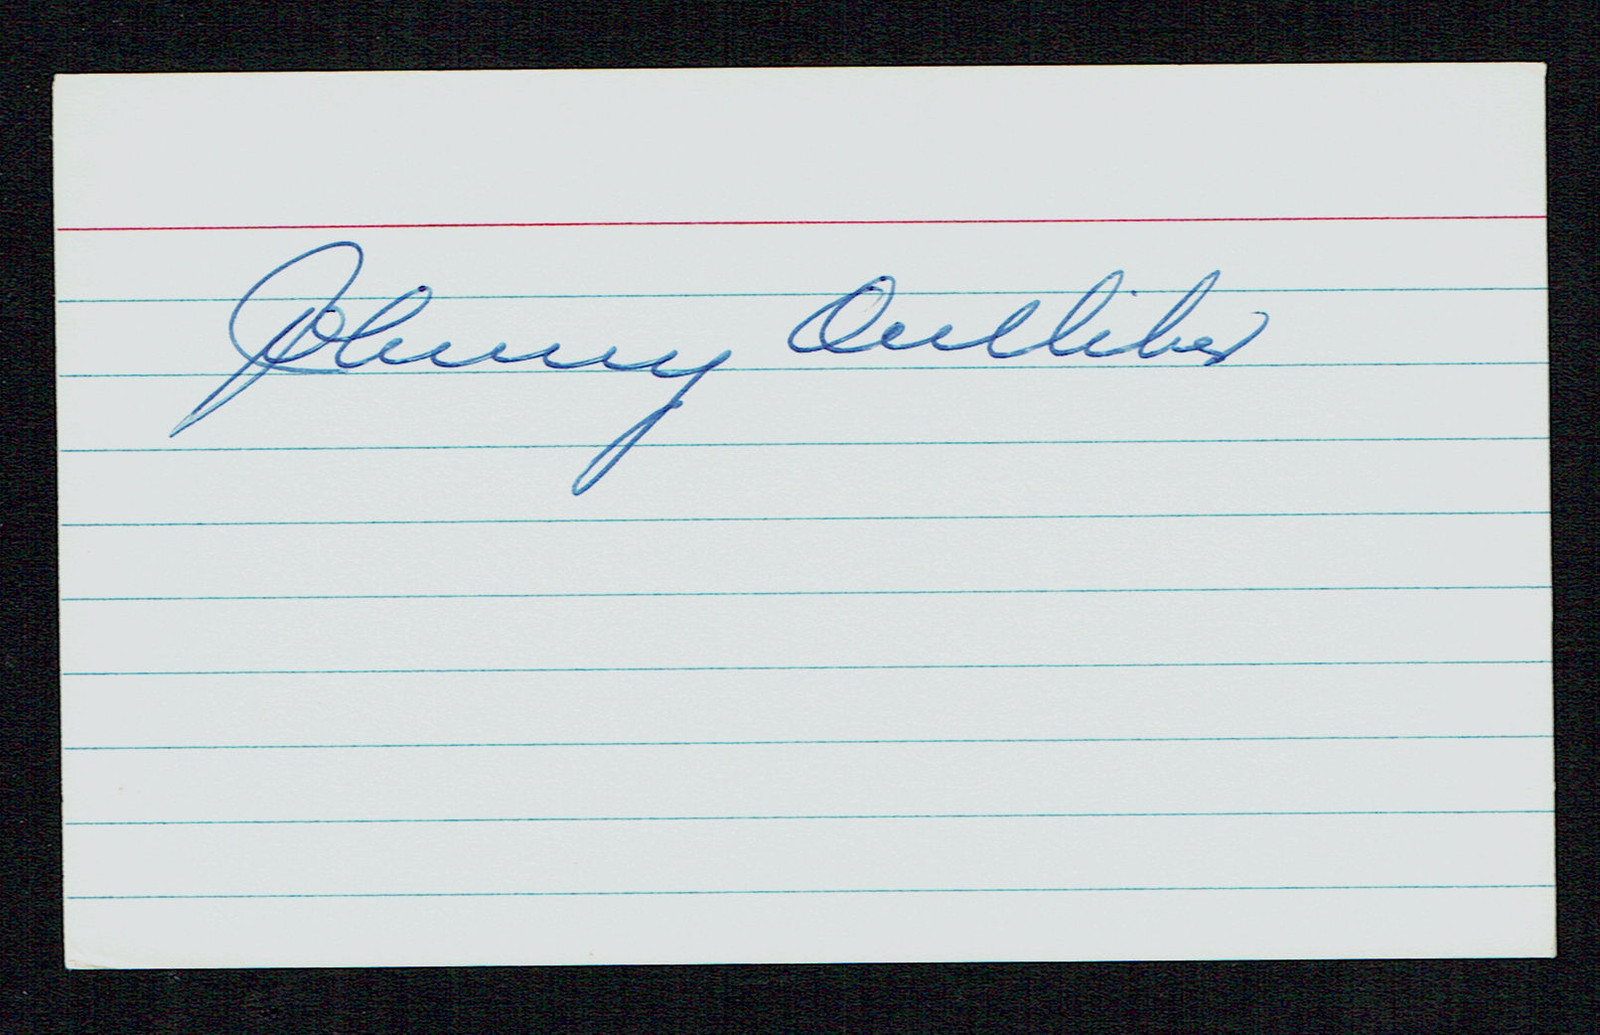 Johnny Oulliber